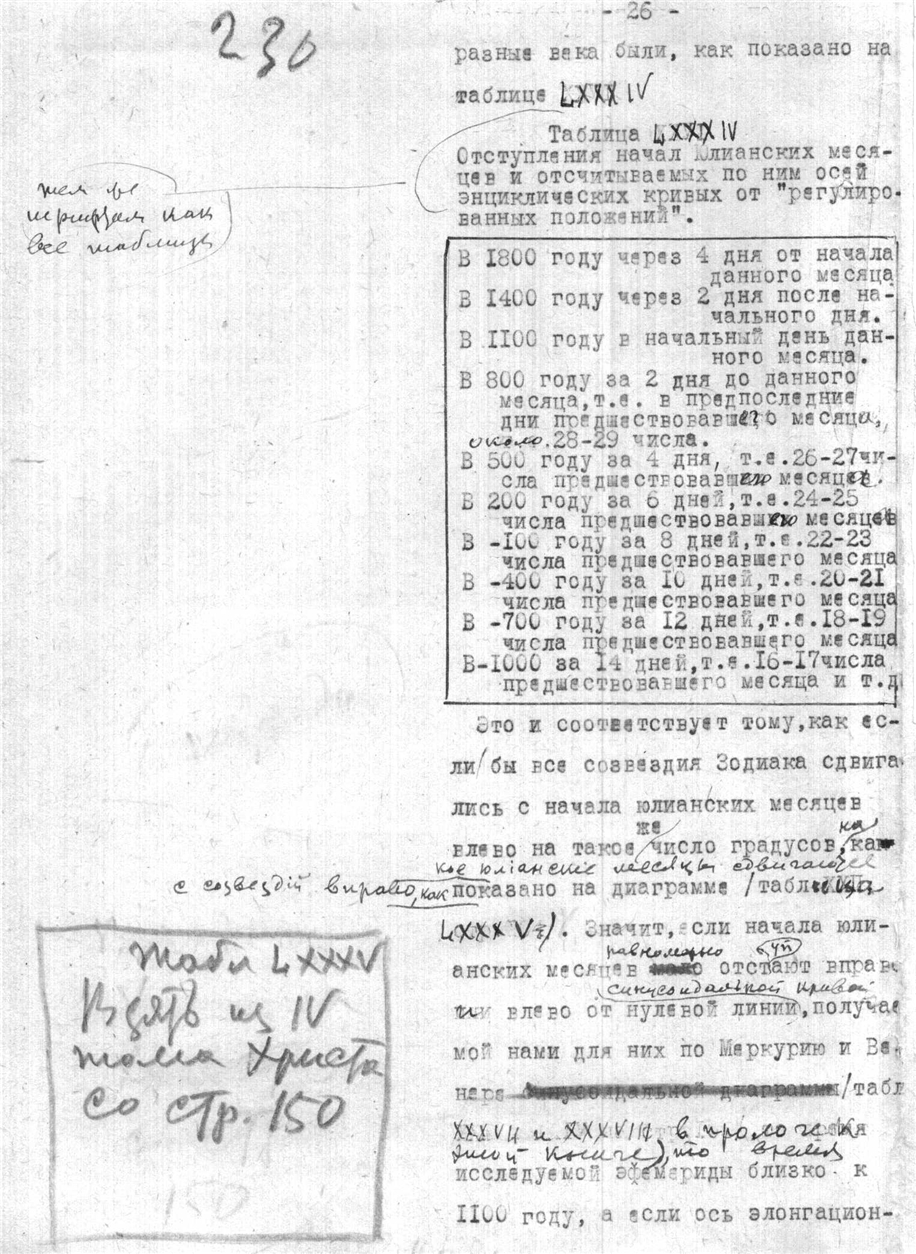 - 26 -
230
разные века были, как показано на
таблице LXXXIV
Таблица LXXXIV
Отступления начал Юлианских меся-
цев и отсчитываемых по ним осей
энциклических кривых от "регулиро-
ванных положений".
тем же
шрифтом как
все таблицы
В 1800 году через 4 дня от начала
данного месяца
В 1400 году через 2 дня после на-
чального дня.
В 1100 году в начальный день дан-
ного месяца.
В 800 году за 2 дня до данного
месяца,т.е. в предпоследние
дни предшествовавшего месяца,
около 28-29 числа.
В 500 году за 4 дня, т.е.26-27чи-
сла предшествовавшего месяца.
В 200 году за 6 дней,т.е.24-25
числа предшествовавшего месяца
В -100 году за 8 дней,т.е.22-23
числа предшествовавшего месяца
В -400 году за 10 дней,т.е.20-21
числа предшествовавшего месяца
В -700 году за 12 дней,т.е.18-19
числа предшествовавшего месяца
В-1000 за 14 дней,т.е.16-17числа
предшествовавшего месяца и т.д
Это и соответствует тому,как ес-
ли бы все созвездия Зодиака сдвига
лись с начала юлианских месяцев
же на
влево на такое число градусов,
кое юлианские месяцы сдвигают
с созвездий вправо, как показано на диаграмме /таблица
LXXXV/. Значит,если начала юли-
равномерно
анских месяцев отстают вправ
синусоидальной кривой
или влево от нулевой линии,получае
мой нами для них по Меркурию и Ве-
нере синусоидальной диаграммы/табл
XXXVII и XXXVIII в прологе к
этой книге), то время
исследуемой эфемериды близко к
1100 году, а если ось элонгацион-
Табл LXXXV
Взять из IV
тома Христа
со стр. 150
150